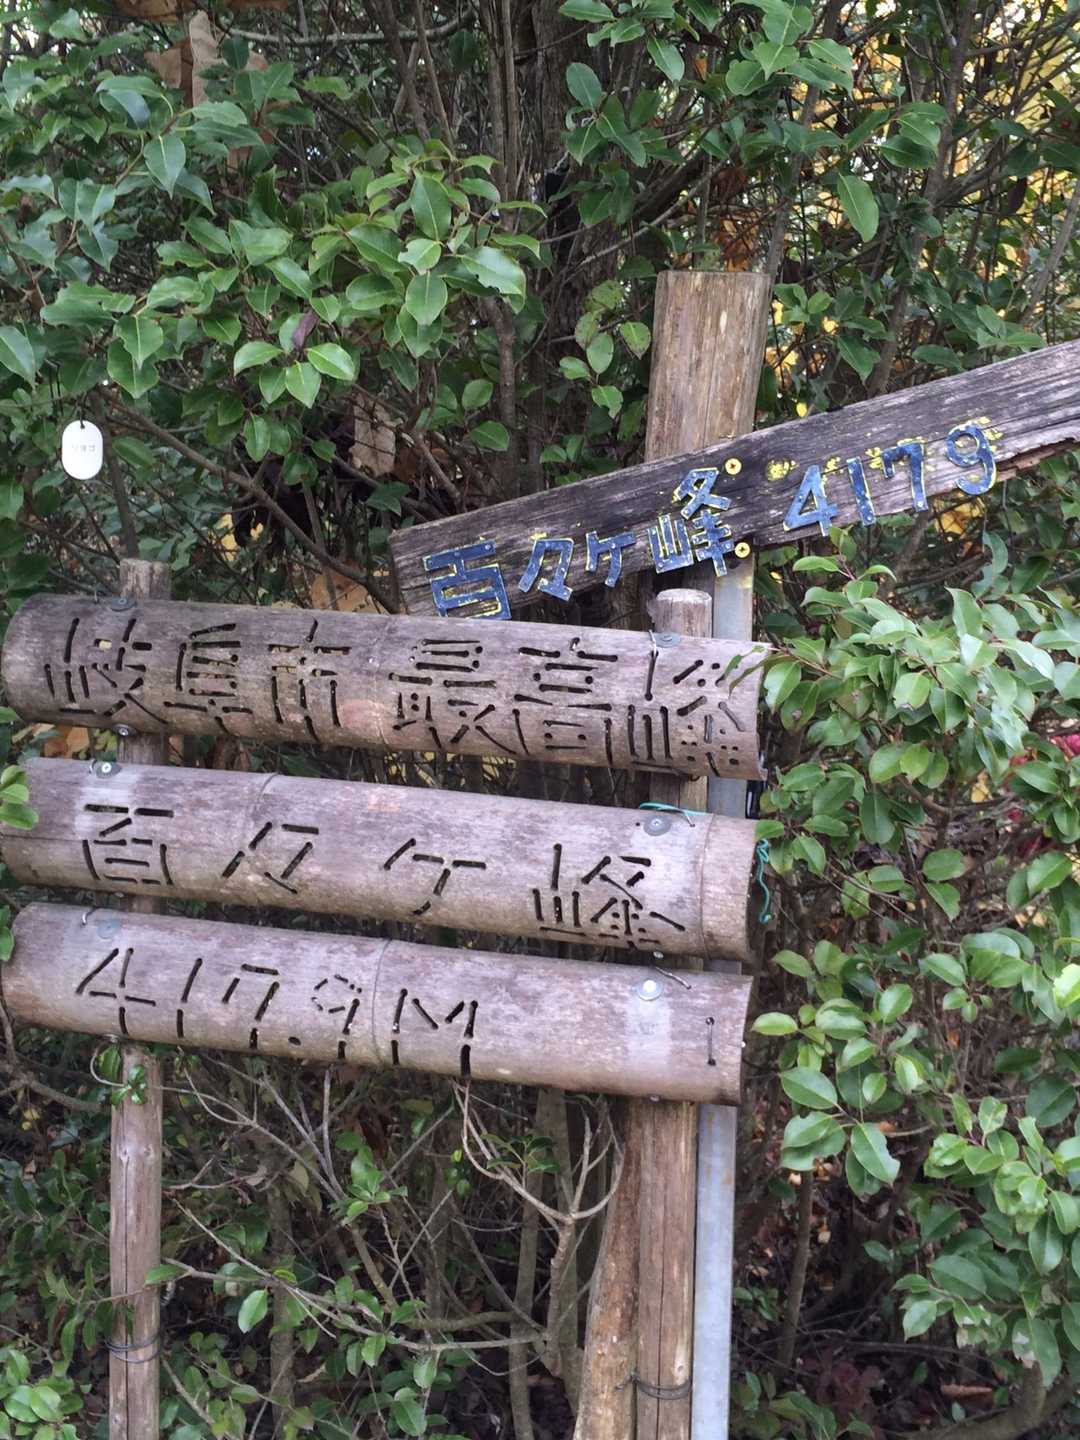 百々ケ峰 417.9
岐阜市最高峰
百々ケ峰
417.9M